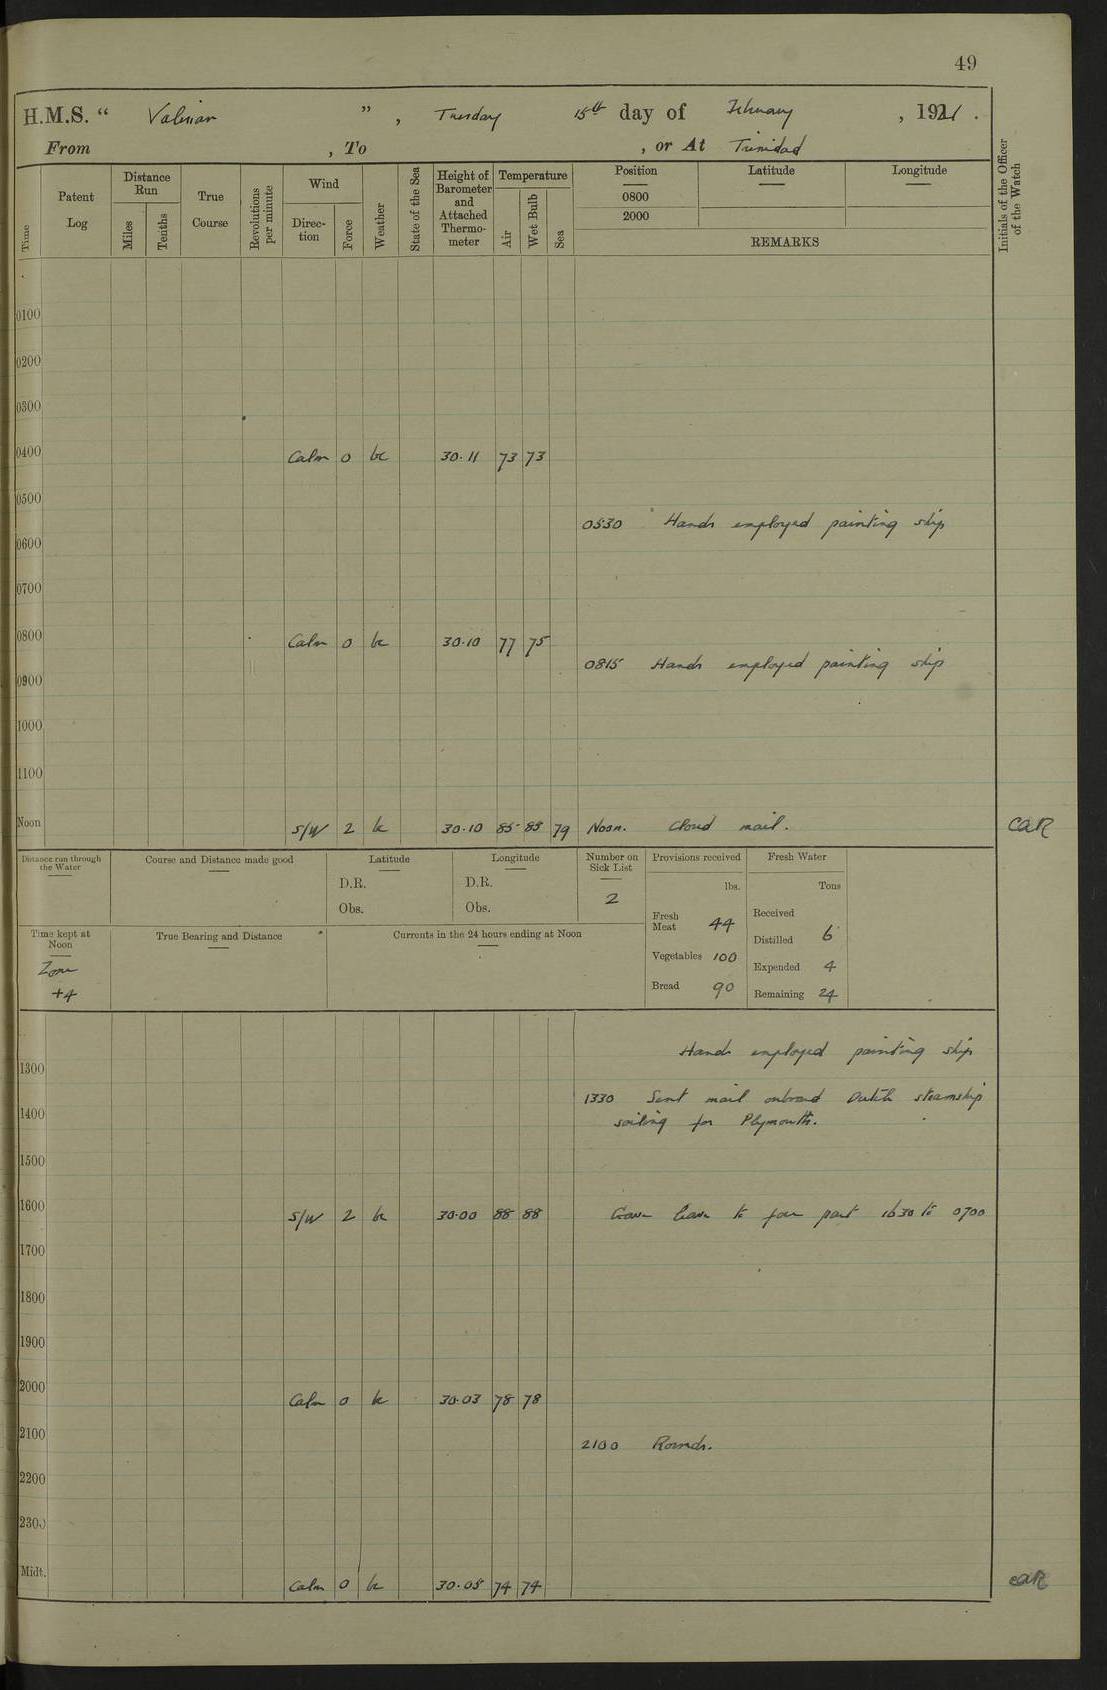 49
H.M.S. “ Valerian ” , Tuesday 15th day of February , 1921 .
From , To , or At Trinidad
Time
Patent Log
Distance Run
Miles
Tenths
True Course
Revolutions per minute
Wind
Direction
Force
Weather
State of the Sea
Height of Barometer and Attached Thermometer
Temperature
Air
Wet Bulb
Sea
Position
0800
2000
Latitude
Longitude
REMARKS
Initials of the Officer of the Watch
0100
0200
0300
0400 Calm 0 bc 30.11 73 73
0500
0530 Hands employed painting ship
0600
0700
0800 Calm 0 bc 30.10 77 75
0815 Hands employed painting ship
0900
1000
1100
Noon S/W 2 bc 30.10 85 85 79 Noon. Closed mail. CAR
Distance run through the Water
Course and Distance made good
Latitude
D.R.
Obs.
Longitude
D.R.
Obs.
Number on Sick List
2
Provisions received
lbs.
Fresh Meat 44
Vegetables 100
Bread 90
Fresh Water
Tons
Received
Distilled 6
Expended 4
Remaining 24
Time kept at Noon
Zone
+4
True Bearing and Distance
Currents in the 24 hours ending at Noon
Hands employed painting ship
1300
1330 Sent mail onboard Dutch steamship
1400
sailing for Plymouth.
1500
1600 S/W 2 bc 30.00 88 88 Gave leave to four part 1630 to 0700
1700
1800
1900
2000 Calm 0 bc 30.03 78 78
2100 2100 Rounds.
2200
2300
Midt. Calm 0 bc 30.05 74 74 CAR